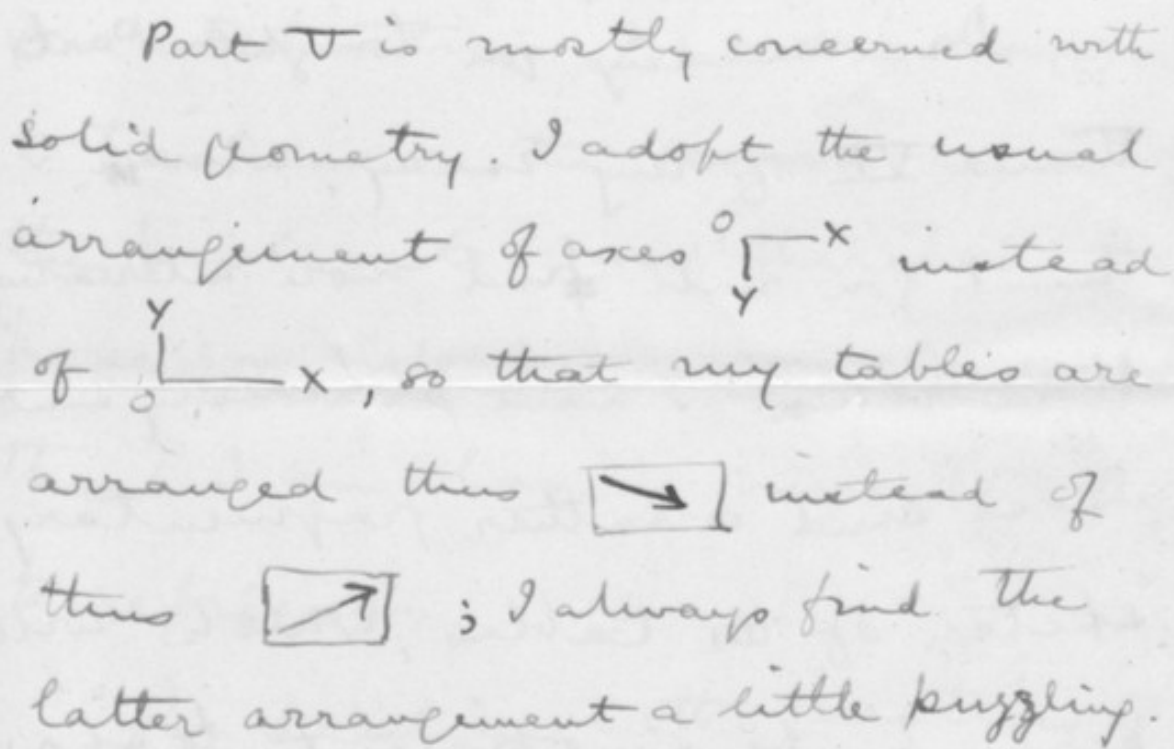 Part V is mostly concerned with
solid geometry. I adopt the usual
arrangement of axes O X Y instead
of Y O X, so that my tables are
arranged thus instead of
thus ; I always find the
latter arrangement a little puzzling.